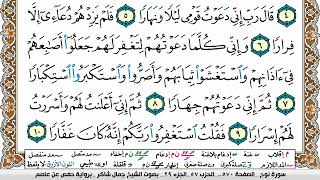 ٤ قَالَ رَبِّ إِنِّي دَعَوْتُ قَوْمِي لَيْلًا وَنَهَارًا ٥ فَلَمْ يَزِدْهُمْ دُعَآءِىٓ إِلَّا
فِرَارًا ٦ وَإِنِّي كُلَّمَا دَعَوْتُهُمْ لِتَغْفِرَ لَهُمْ جَعَلُوٓا۟ أَصَٰبِعَهُمْ
فِىٓ ءَاذَانِهِمْ وَٱسْتَغْشَوْا۟ ثِيَابَهُمْ وَأَصَرُّوا۟ وَٱسْتَكْبَرُوا۟ ٱسْتِكْبَارًا
٧ ثُمَّ إِنِّي دَعَوْتُهُمْ جِهَارًا ٨ ثُمَّ إِنِّىٓ أَعْلَنتُ لَهُمْ وَأَسْرَرْتُ
لَهُمْ إِسْرَارًا ٩ فَقُلْتُ ٱسْتَغْفِرُوا۟ رَبَّكُمْ إِنَّهُۥ كَانَ غَفَّارًا ١٠
سورة نوح الصفحة ٥٧٠ الحزب ٥٧ الجزء ٢٩ بصوت الشيخ جمال شاكر رواية حفص عن عاصم